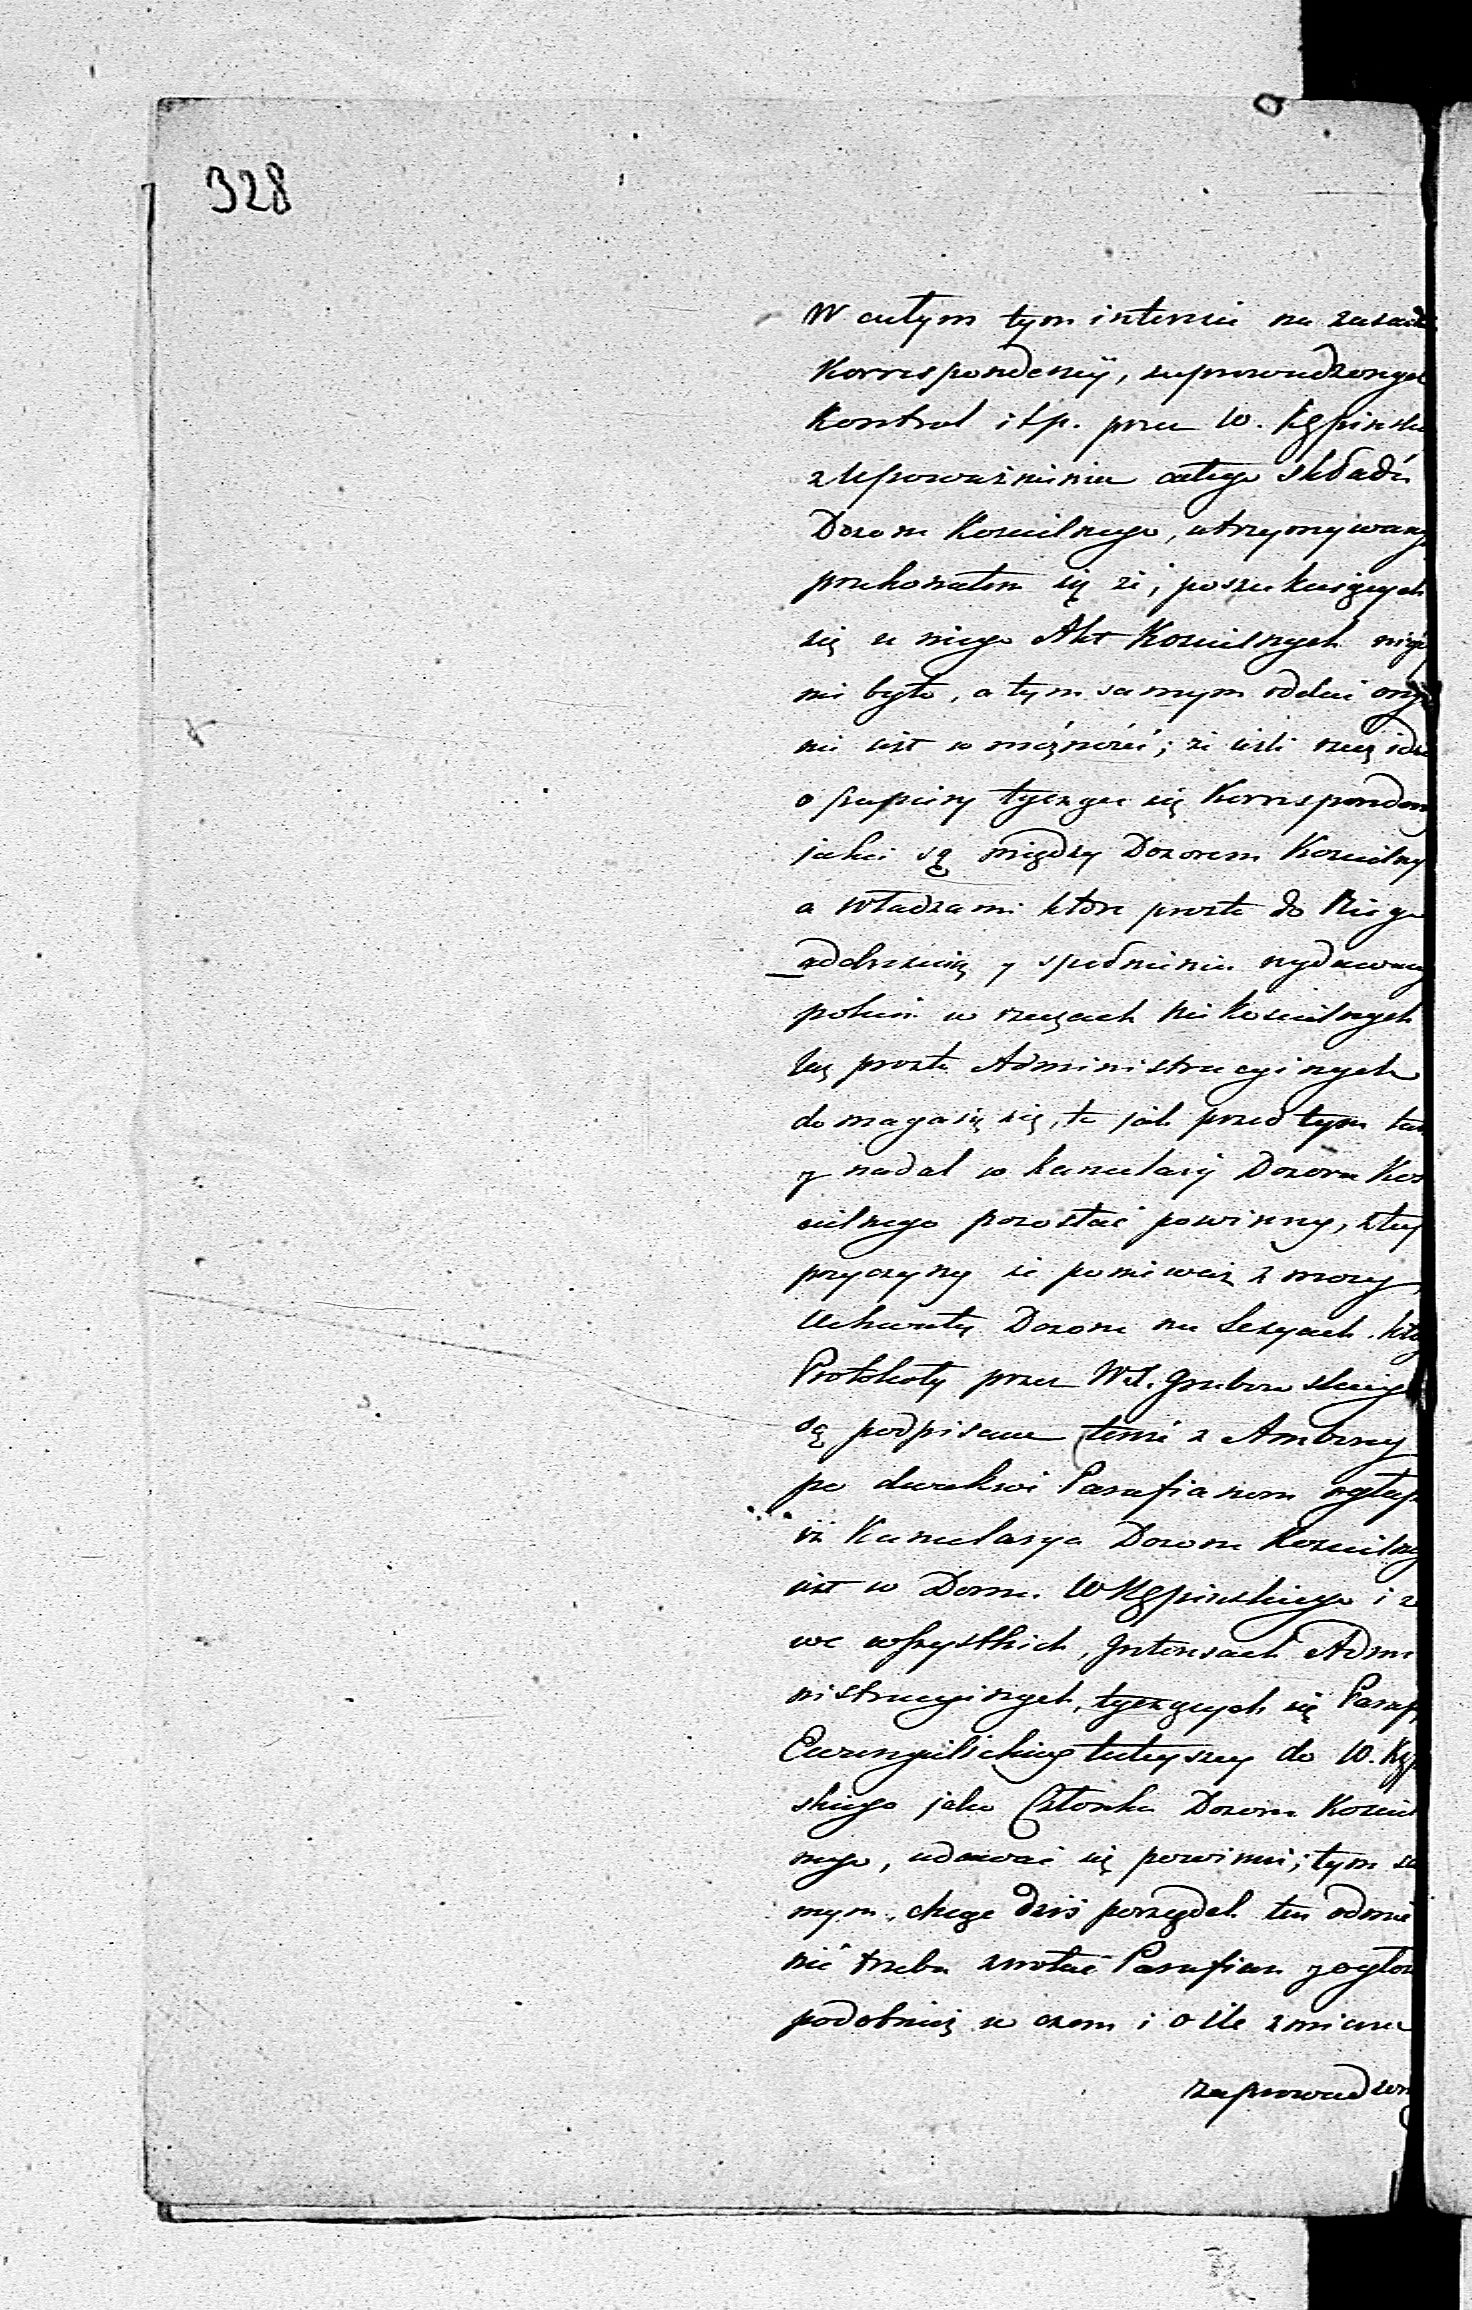 328
W całym tym interesie na zasadz
Korrespondencyi, zaprowadzonych
Kontrol itp. przez W. Kępińsk
z Upoważnienia całego składu
Dozoru Kościelnego, utrzymywany
przekonałem się że, poszukujących
się u niego Akt Kościelnych nigd
nie było, a tym samym oddać onyc
nie jest w możności; że jeśli rzecz idzie
o papiery tyczące się Korrespondency
jakie są między Dozorem Kościelny
a Władzami które prosto do Niego
addressują y spełnienia wydawany
poleceń w rzeczach nie Kościelnych
lecz prosto Administracyinych
domagają się, te jak przed tym tak
y nadal w kancelaryi Dozoru Koś
cielnego pozostać powinny, z tey
przyczyny że ponieważ z mocy
Uchwały Dozoru na Sesyach któ
Protokoły przez WJ. Grabowskieg
są podpisane temiż z Ambony
po dwakroć Parafianom ogłasz
iż Kancelarya Dozoru Kościelneg
jest w Domu W Kępińskiego i ż
we wszystkich Interesach Admi
nistracyinych, tyczących się Paraf
Ewangelickiey tuteyszey do W. Kęp
skiego jako Członka Dozoru Kościel
nego, udawać się powinni; tym sa
mym, chcąc dziś porządek ten odmie
nić trzeba zwołać Parafian y ogłos
podobnież w czem i o ile zmiana
zaprowadzon